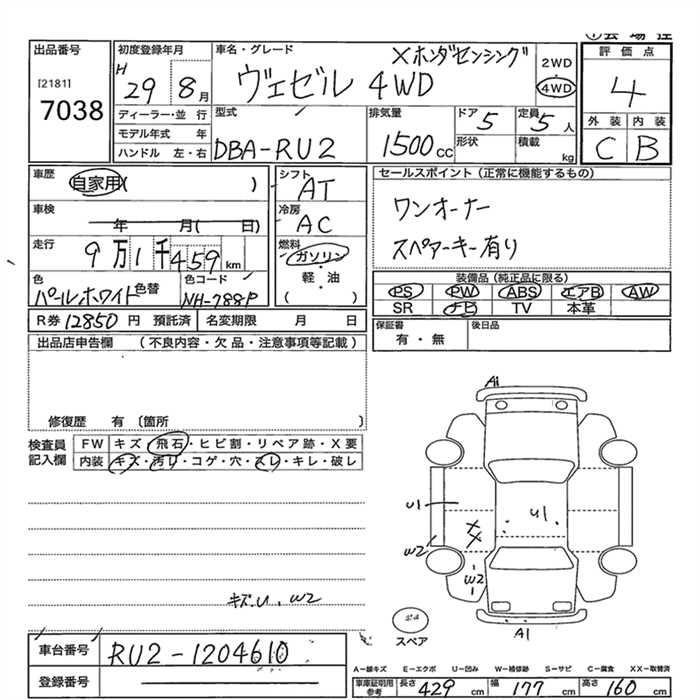 出品番号
[2181]
7038
初度登録年月
H 29 8 月
ディーラー・並 行
モデル年式 年
ハンドル 左・右
車名・グレード
Xホンダセンシング
ヴェゼル 4WD
2WD
4WD
型式
DBA-RU2
排気量
1500 cc
ドア 5
定員 5 人
形状
積載 kg
評価点
4
外装 内装
C B
車歴
自家用( )
車検
年 月( 日)
走行
9万1千459 km
色
パールホワイト
色替
色コード
NH-788P
シフト
AT
冷房
AC
燃料
ガソリン
軽・油
( )
R券 12850 円 預託済 名変期限 月 日
セールスポイント(正常に機能するもの)
ワンオーナー
スペアーキー有り
装備品(純正品に限る)
PS PW ABS エアB AW
SR ナビ TV 本革
保証書
有・無
後日品
出品店申告欄 (不良内容・欠品・注意事項等記載)
修復歴 有〔箇所 〕
検査員
記入欄
FW キズ・飛石・ヒビ割・リペア跡・X要
内装 キズ・汚れ・コゲ・穴・スレ・キレ・破レ
キズ・U、W2
A1
U1
U1
W2
X
X
W2
A1
スペア
車台番号 RU2-1204610
登録番号
A-線キズ E-エクボ U-凹み W-補修跡 S-サビ C-腐食 XX-取替済
車庫証明用
参考
長さ 429 cm 幅 177 cm 高さ 160 cm